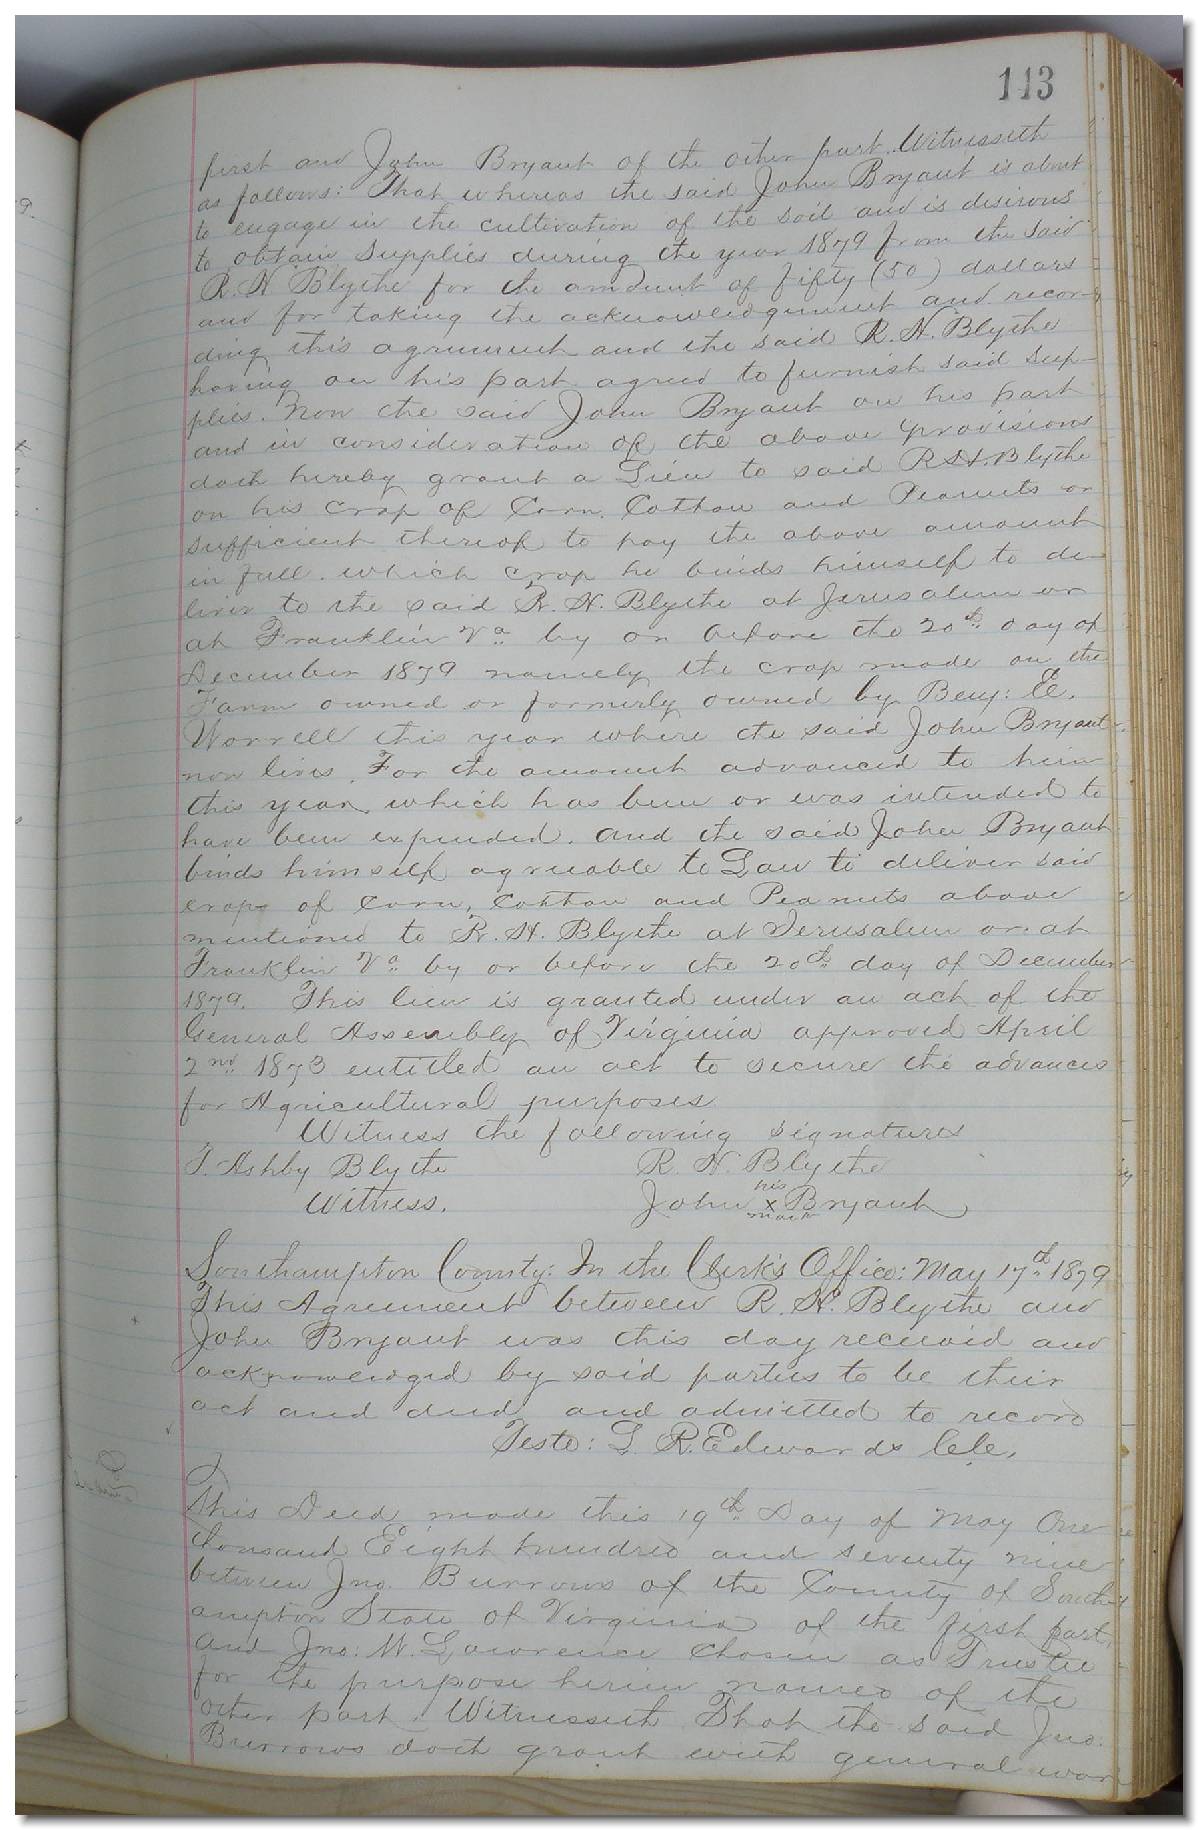 143
first and John Bryant of the other part. Witnesseth
as follows: That whereas the said John Bryant is about
to engage in the cultivation of the soil and is disirous
to obtain supplies during the year 1879 from the said
R. H Blythe for the amount of fifty (50) dollars
and for taking the acknowledgment and recor-
ding this agreement and the said R. H. Blythe
having on his part agreed to furnish said sup-
plies. Now the said John Bryant on his part
and in consideration of the above provisions
doth hereby grant a Lien to said R. H. Blythe
on his crop of Corn, Cotton and Peanuts or
sufficient thereof to pay the above amount
in full. which crop he binds himself to de-
liver to the said R. H. Blythe at Jerusalem or
at Franklin Va by or before the 20th day of
December 1879 namely the crop made on the
Farm owned or formerly owned by Benj: E.
Worrell this year where the said John Bryant
now lives. For the amount advanced to him
this year which has been or was intended to
have been expended. and the said John Bryant
binds himself agreeable to Law to deliver said
crop of Corn, Cotton and Peanuts above
mentioned to R. H. Blythe at Jerusalem or at
Franklin Va by or before the 20th day of December
1879. This lien is granted under an act of the
General Assembly of Virginia approved April
2nd 1873 entitled an act to secure the advances
for Agricultural purposes
Witness the following signatures
T. Ashby Blythe R. H. Blythe
Witness. John his x mark Bryant
Southampton County: In the Clerk's Office: May 17th 1879
This Agreement between R. H. Blythe and
John Bryant was this day received and
acknowledged by said parties to be their
act and deed and admitted to record
Teste: L. R. Edwards C.C.
This Deed made this 19th Day of May One
thousand Eight hundred and seventy nine
between Jno. Burrows of the County of South-
ampton State of Virginia of the first part,
and Jno. W. Lawrence Chosen as Trustee
for the purpose herein named of the
other part. Witnesseth That the said Jno.
Burrows doth grant with general war